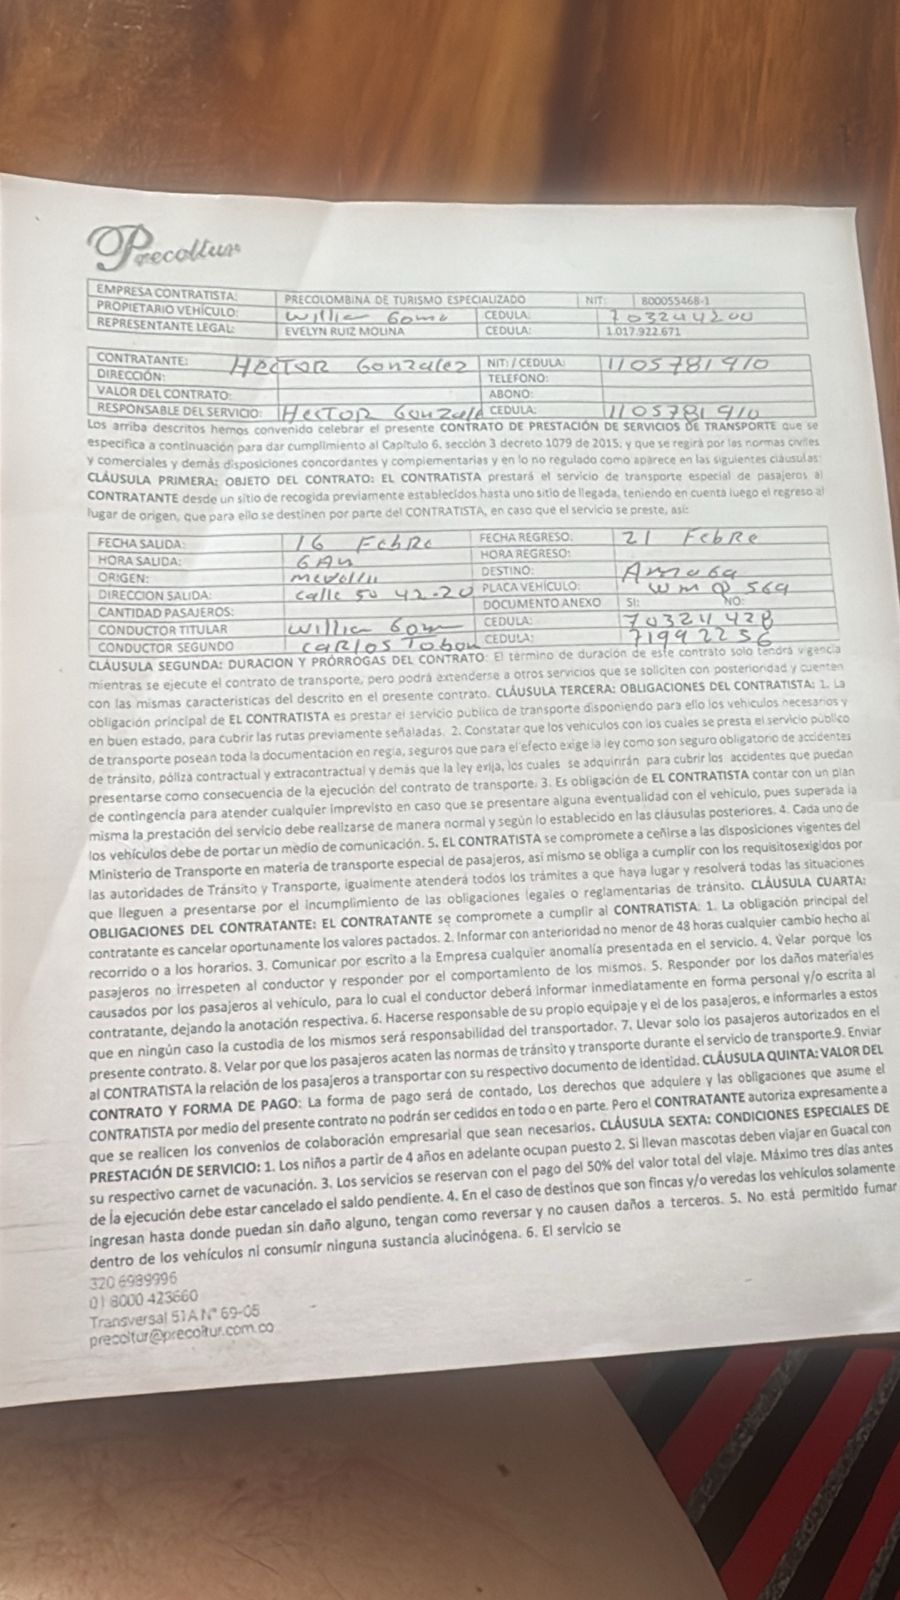 Precoltur
EMPRESA CONTRATISTA: PRECOLOMBINA DE TURISMO ESPECIALIZADO NIT: 800055468-1
PROPIETARIO VEHÍCULO: Willia Gomu CEDULA:
REPRESENTANTE LEGAL: EVELYN RUIZ MOLINA CEDULA: 1.017.922.671
CONTRATANTE: HECTOR Gonzalez NIT: / CEDULA: 1105781910
DIRECCIÓN: TELEFONO:
VALOR DEL CONTRATO: ABONO:
RESPONSABLE DEL SERVICIO: HECTOR Gonzale CEDULA: 1105781910
Los arriba descritos hemos convenido celebrar el presente CONTRATO DE PRESTACIÓN DE SERVICIOS DE TRANSPORTE que se
especifica a continuación para dar cumplimiento al Capítulo 6, sección 3 decreto 1079 de 2015, y que se regirá por las normas civiles
y comerciales y demás disposiciones concordantes y complementarias y en lo no regulado como aparece en las siguientes cláusulas:
CLÁUSULA PRIMERA: OBJETO DEL CONTRATO: EL CONTRATISTA prestará el servicio de transporte especial de pasajeros al
CONTRATANTE desde un sitio de recogida previamente establecidos hasta uno sitio de llegada, teniendo en cuenta luego el regreso al
lugar de origen, que para ello se destinen por parte del CONTRATISTA, en caso que el servicio se preste, así:
FECHA SALIDA: 16 FebRe FECHA REGRESO: 21 FebRe
HORA SALIDA: 6 AM HORA REGRESO:
ORIGEN: DESTINO:
DIRECCION SALIDA: calle 50 42-20 PLACA VEHÍCULO: 569
CANTIDAD PASAJEROS: DOCUMENTO ANEXO SI: NO:
CONDUCTOR TITULAR Willia Gom CEDULA: 70324428
CONDUCTOR SEGUNDO CARLOS Tobon CEDULA: 71992256
CLÁUSULA SEGUNDA: DURACION Y PRÓRROGAS DEL CONTRATO: El término de duración de este contrato solo tendrá vigencia
mientras se ejecute el contrato de transporte, pero podrá extenderse a otros servicios que se soliciten con posterioridad y cuenten
con las mismas características del descrito en el presente contrato. CLÁUSULA TERCERA: OBLIGACIONES DEL CONTRATISTA: 1. La
obligación principal de EL CONTRATISTA es prestar el servicio publico de transporte disponiendo para ello los vehículos necesarios y
en buen estado, para cubrir las rutas previamente señaladas. 2. Constatar que los vehículos con los cuales se presta el servicio público
de transporte posean toda la documentación en regla, seguros que para el efecto exige la ley como son seguro obligatorio de accidentes
de tránsito, póliza contractual y extracontractual y demás que la ley exija, los cuales se adquirirán para cubrir los accidentes que puedan
presentarse como consecuencia de la ejecución del contrato de transporte. 3. Es obligación de EL CONTRATISTA contar con un plan
de contingencia para atender cualquier imprevisto en caso que se presentare alguna eventualidad con el vehículo, pues superada la
misma la prestación del servicio debe realizarse de manera normal y según lo establecido en las cláusulas posteriores. 4. Cada uno de
los vehículos debe de portar un medio de comunicación. 5. EL CONTRATISTA se compromete a ceñirse a las disposiciones vigentes del
Ministerio de Transporte en materia de transporte especial de pasajeros, así mismo se obliga a cumplir con los requisitosexigidos por
las autoridades de Tránsito y Transporte, igualmente atenderá todos los trámites a que haya lugar y resolverá todas las situaciones
que lleguen a presentarse por el incumplimiento de las obligaciones legales o reglamentarias de tránsito. CLÁUSULA CUARTA:
OBLIGACIONES DEL CONTRATANTE: EL CONTRATANTE se compromete a cumplir al CONTRATISTA: 1. La obligación principal del
contratante es cancelar oportunamente los valores pactados. 2. Informar con anterioridad no menor de 48 horas cualquier cambio hecho al
recorrido o a los horarios. 3. Comunicar por escrito a la Empresa cualquier anomalía presentada en el servicio. 4. Velar porque los
pasajeros no irrespeten al conductor y responder por el comportamiento de los mismos. 5. Responder por los daños materiales
causados por los pasajeros al vehículo, para lo cual el conductor deberá informar inmediatamente en forma personal y/o escrita al
contratante, dejando la anotación respectiva. 6. Hacerse responsable de su propio equipaje y el de los pasajeros, e informarles a estos
que en ningún caso la custodia de los mismos será responsabilidad del transportador. 7. Llevar solo los pasajeros autorizados en el
presente contrato. 8. Velar por que los pasajeros acaten las normas de tránsito y transporte durante el servicio de transporte.9. Enviar
al CONTRATISTA la relación de los pasajeros a transportar con su respectivo documento de identidad. CLÁUSULA QUINTA: VALOR DEL
CONTRATO Y FORMA DE PAGO: La forma de pago será de contado, Los derechos que adquiere y las obligaciones que asume el
CONTRATISTA por medio del presente contrato no podrán ser cedidos en todo o en parte. Pero el CONTRATANTE autoriza expresamente a
que se realicen los convenios de colaboración empresarial que sean necesarios. CLÁUSULA SEXTA: CONDICIONES ESPECIALES DE
PRESTACIÓN DE SERVICIO: 1. Los niños a partir de 4 años en adelante ocupan puesto 2. Si llevan mascotas deben viajar en Guacal con
su respectivo carnet de vacunación. 3. Los servicios se reservan con el pago del 50% del valor total del viaje. Máximo tres días antes
de la ejecución debe estar cancelado el saldo pendiente. 4. En el caso de destinos que son fincas y/o veredas los vehículos solamente
ingresan hasta donde puedan sin daño alguno, tengan como reversar y no causen daños a terceros. 5. No está permitido fumar
dentro de los vehículos ni consumir ninguna sustancia alucinógena. 6. El servicio se
320 6989996
01 8000 423660
Transversal 51A N° 69-05
precoltur@precoltur.com.co